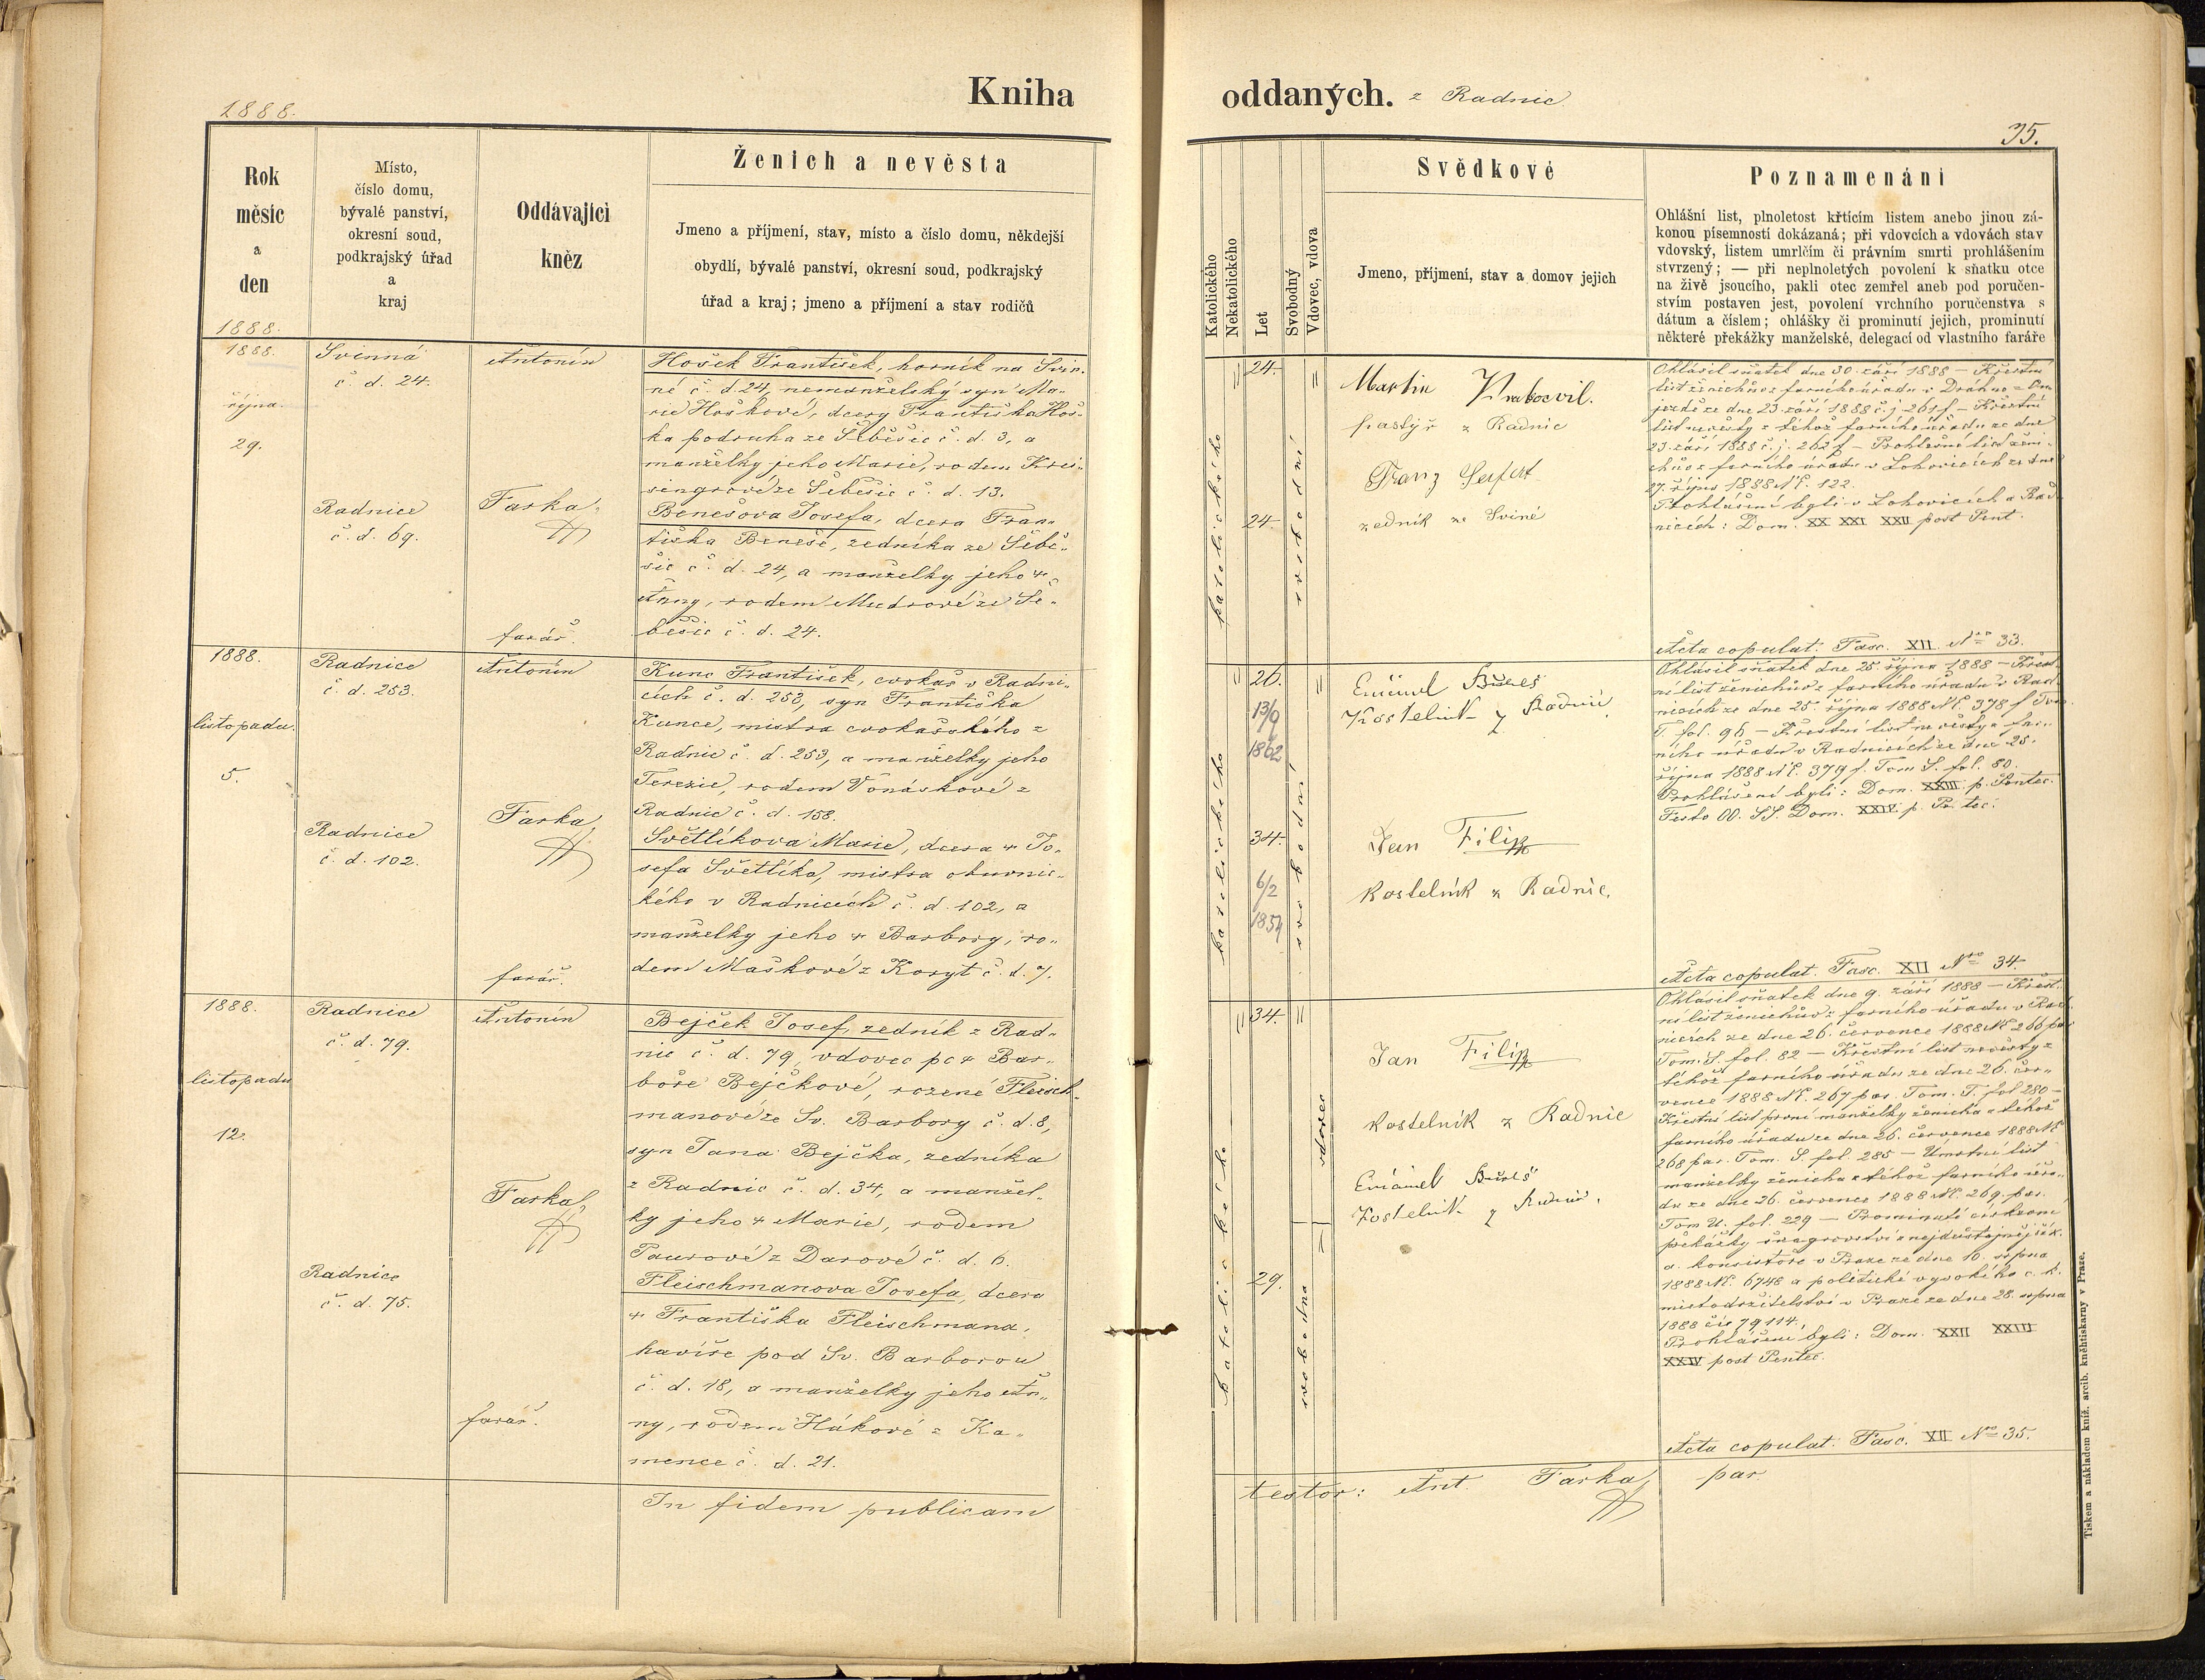 1888.
Kniha
Rok
měsíc
a
den
Místo,
číslo domu,
bývalé panství,
okresní soud,
podkrajský úřad
a
kraj
Oddávající
kněz
Ženich a nevěsta
Jmeno a příjmení, stav, místo a číslo domu, někdejší
obydlí, bývalé panství, okresní soud, podkrajský
úřad a kraj; jmeno a příjmení a stav rodičů
1888.
1888.
října
29.
Svinná
č. d. 24.
Radnice
č. d. 69.
Antonín
Farka,
farář.
Hošek František, horník na Svin-
né č. d. 24, nemanželský syn Ma-
rie Hoškové, dcery Františka Hoš-
ka podruha ze Šebešic č. d. 3, a
manželky jeho Marie, rodem
ze Šebešic č. d. 13.
Benešova Josefa, dcera Fran-
tiška Beneše, zedníka ze Šebe-
šic č. d. 24, a manželky jeho +
Anny, rodem Mudrové ze Še-
bešic č. d. 24.
1888.
listopadu
5.
Radnice
č. d. 253.
Radnice
č. d. 102.
Antonín
Farka
farář.
Kunc František, cvokař v Radni-
cích č. d. 253, syn Františka
Kunce, mistra cvokařského z
Radnic č. d. 253, a manželky jeho
Terezie, rodem Vonáskové z
Radnic č. d. 158.
Světlíkova Marie, dcera + Jo-
sefa Světlíka, mistra obuvnic-
kého v Radnicích č. d. 102, a
manželky jeho + Barbory, ro-
dem Maškové z Koryt č. d. 7.
1888.
listopadu
12.
Radnice
č. d. 79.
Radnice
č. d. 75.
Antonín
Farka,
farář.
Bejček Josef, zedník z Rad-
nic č. d. 79, vdovec po + Bar-
boře Bejčkové, rozené Fleisch-
manové ze Sv. Barbory č. d. 8,
syn Jana Bejčka, zedníka
z Radnic č. d. 34, a manžel-
ky jeho + Marie, rodem
Paurové z Darové č. d. 6.
Fleischmanova Josefa, dcera
+ Františka Fleischmana,
havíře pod Sv. Barborou
č. d. 18, a manželky jeho An-
ny, rodem Hákové z Ka-
mence č. d. 21.
In fidem publicam
oddaných. z Radnic
35.
Katolického
Nekatolického
Let
Svobodný
Vdovec, vdova
Svědkové
Jmeno, příjmení, stav a domov jejich
Poznamenání
Ohlášní list, plnoletost křtícím listem anebo jinou zá-
konou písemností dokázaná; při vdovcích a vdovách stav
vdovský, listem umrlčím či právním smrti prohlášením
stvrzený; — při neplnoletých povolení k sňatku otce
na živě jsoucího, pakli otec zemřel aneb pod poručen-
stvím postaven jest, povolení vrchního poručenstva s
dátum a číslem; ohlášky či prominutí jejich, prominutí
některé překážky manželské, delegací od vlastního faráře
katolického
24.
24.
svobodní
Martin
pastýř z Radnic
Franz Seifert
zedník ze Sviné
Ohlásil sňatek dne 30. září 1888 – Křestní
list ženichův z farního úřadu v
ze dne 23. září 1888 č. j. 261 f – Křestní
list nevěsty z téhož farního úřadu ze dne
23. září 1888 č. j. 262 f – Prohlašní list ženi-
chův z farního úřadu v Lohovicích ze dne
27. října 1888 Nč. 122.
Prohlášeni byli v Lohovicích a Rad-
nicích: Dom. XX XXI XXII post Pent.
Acta copulat. Fasc. XII Nro 33.
katolického
26.
13/9
1862
34.
6/2
1854
svobodní
Emánuel Bureš
Kostelník z Radnic
Jan Filip
kostelník z Radnic.
Ohlásil sňatek dne 25. října 1888 – Křest-
ní list ženichův z farního úřadu v Rad-
nicích ze dne 25. října 1888 Nč. 378 f Tom
T. fol. 96 – Křestní list nevěsty z far-
ního úřadu v Radnicích ze dne 25.
října 1888 Nč. 379 f. Tom S. fol. 80.
Prohlášeni byli: Dom. XXIII p. Pentec.
Festo OO. SS. Dom. XXIV p. Pentec.
Acta copulat. Fasc. XII Nro 34.
katolického
34.
29.
vdovec
svobodna
Jan Filip
kostelník z Radnic
Emánuel Bureš
Kostelník z Radnic.
Ohlásil sňatek dne 9. září 1888 – Křest-
ní list ženichův z farního úřadu v Rad-
nicích ze dne 26. července 1888 Nč 266 par
Tom. S. fol. 82 – Křestní list nevěsty z
téhož farního úřadu ze dne 26. čer-
vence 1888 Nč. 267 par. Tom. T. fol 280 –
Křestní list první manželky ženicha z téhož
farního úřadu ze dne 26. července 1888 Nč
268 par. Tom. S. fol. 285 – Úmrtní list
manželky ženicha z téhož farního úřa-
du ze dne 26. července 1888 Nč. 269 par.
Tom U. fol. 229 – Prominutí církevní
překážky švagrovství z nejdůstojnější k.
a. konsistoře v Praze ze dne 10. srpna
1888 Nč. 6748 a politické vysokého c. k.
místodržitelství v Praze ze dne 28. srpna
1888 čís 79114.
Prohlášeni byli: Dom. XXII XXIII
XXIV post Pentec.
Acta copulat. Fasc. XII Nro 35.
testor: Ant. Farka, par
Tiskem a nákladem kníž. arcib. kněhtiskarny v Praze.